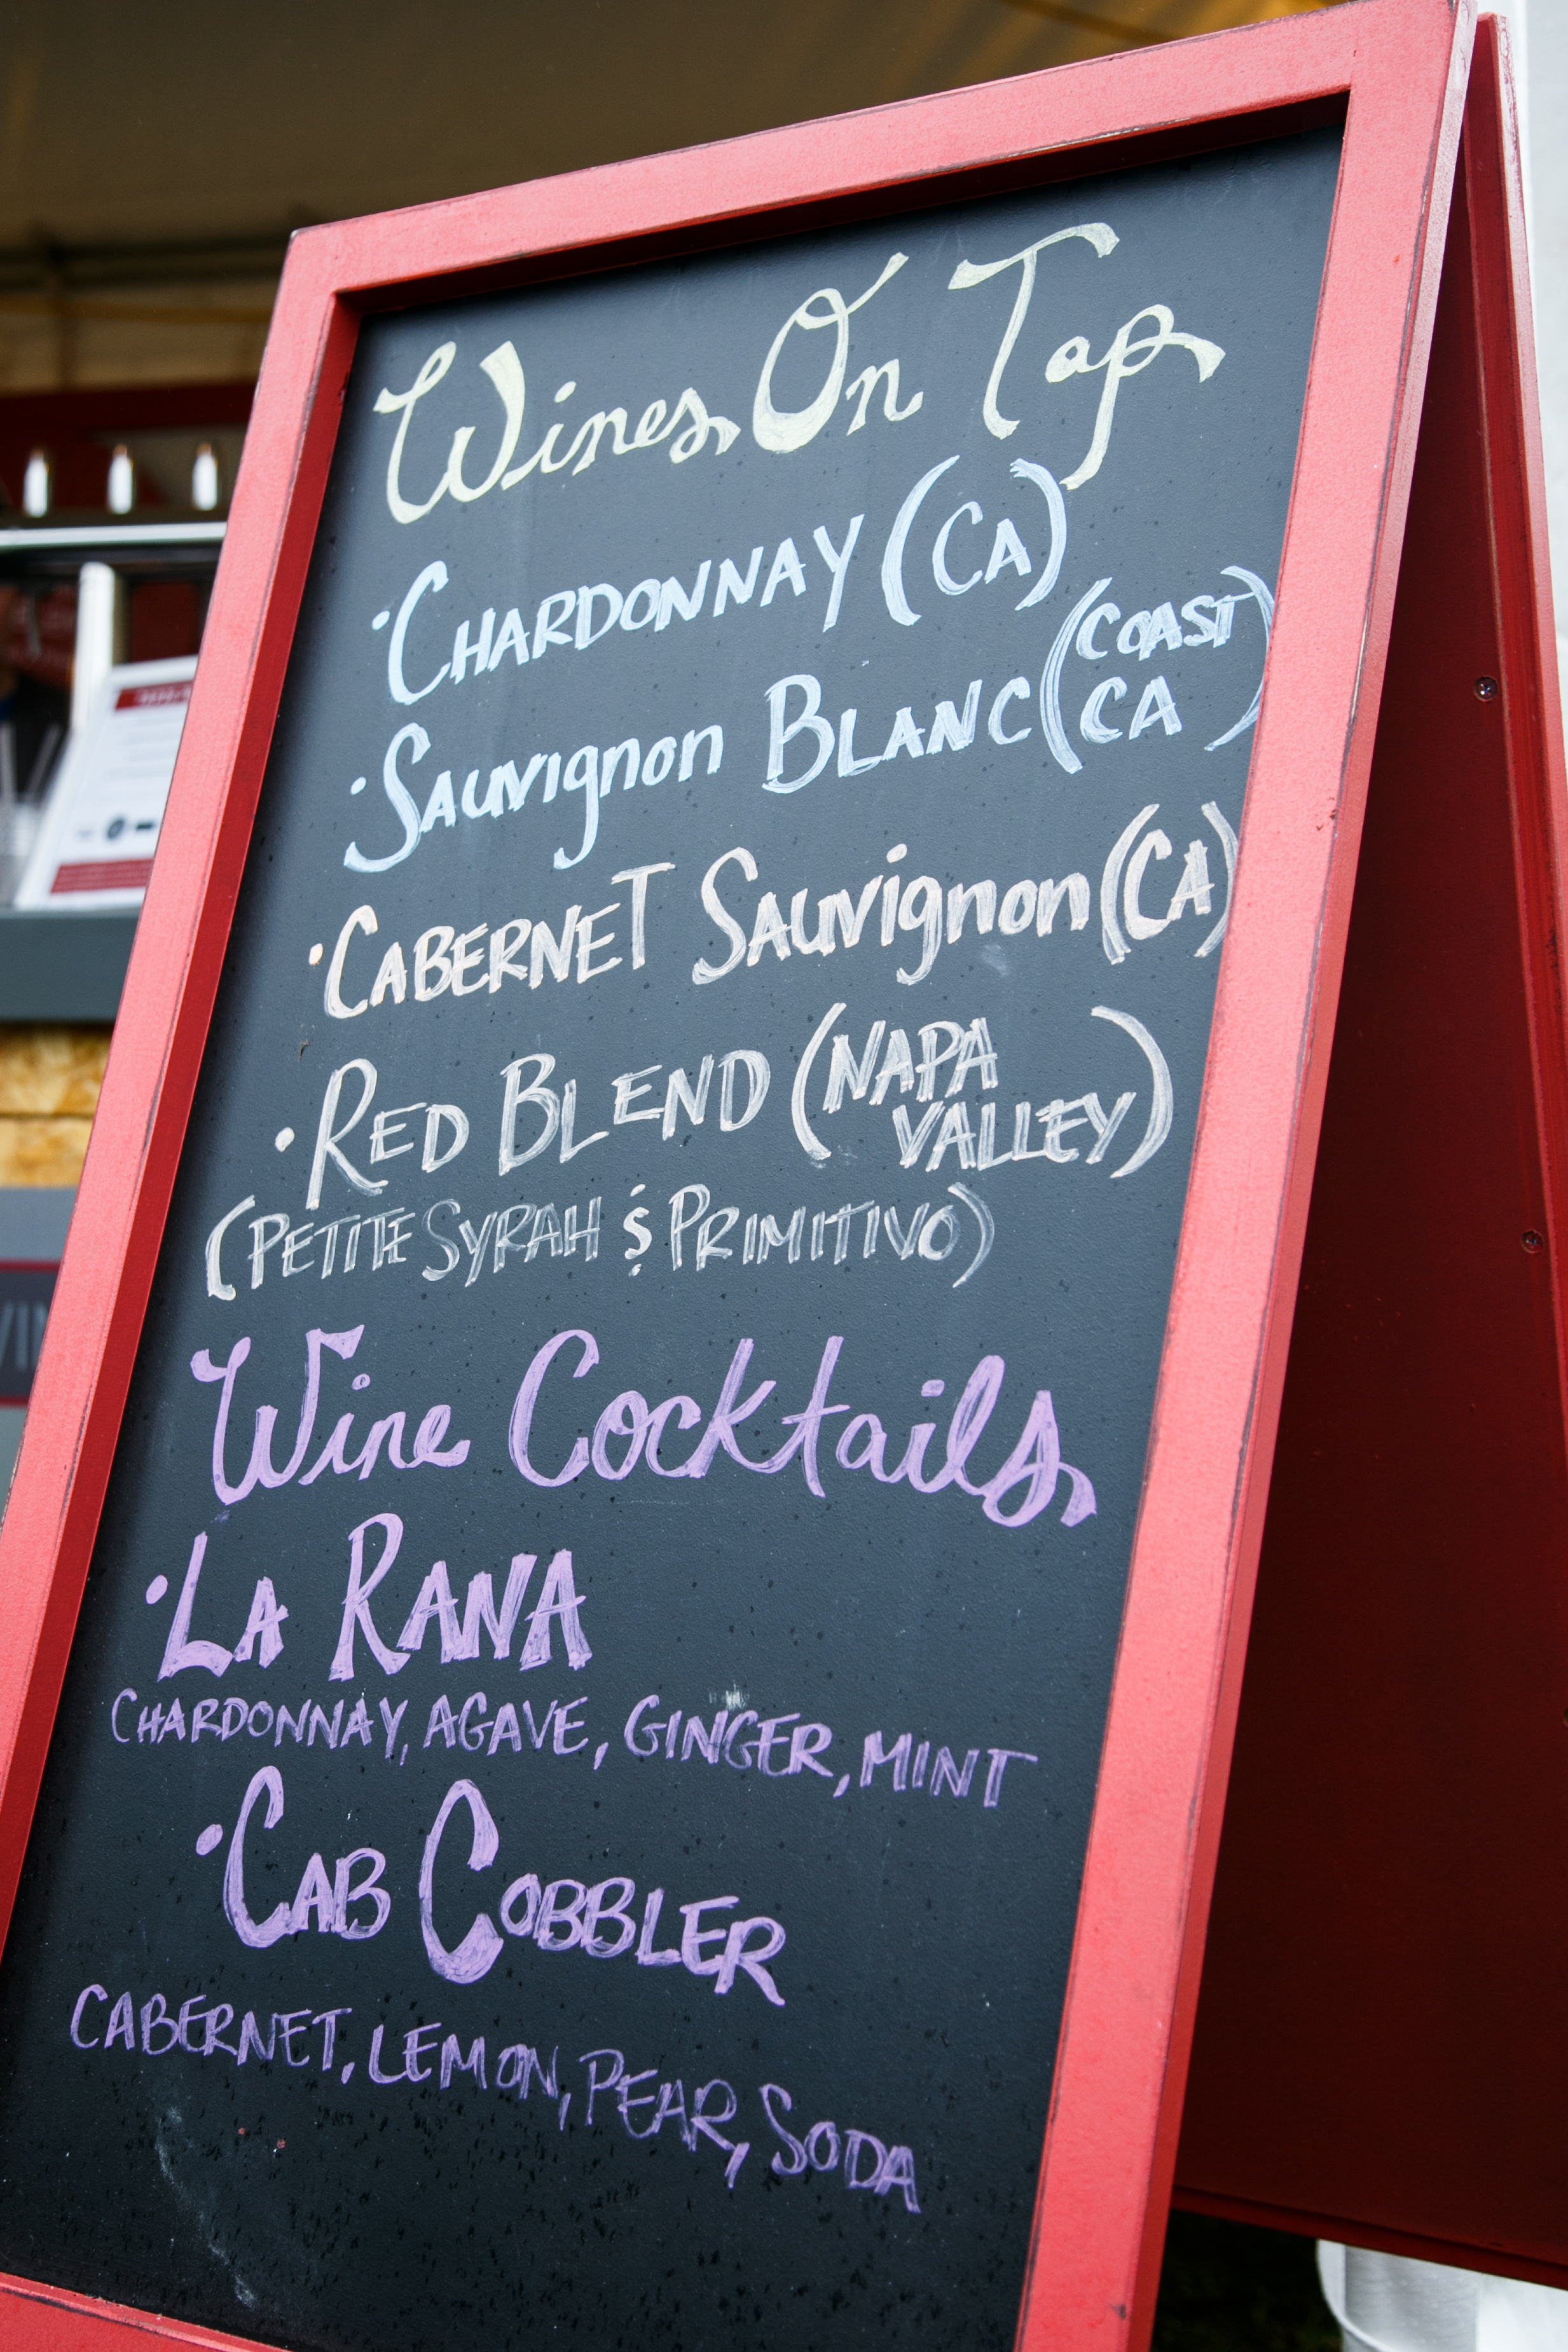 Wines On Tap
• CHARDONNAY (CA)
• SAUVIGNON BLANC (COAST
CA)
• CABERNET SAUVIGNON (CA)
• RED BLEND (NAPA
VALLEY)
(PETITE SYRAH & PRIMITIVO)
Wine Cocktails
• LA RANA
CHARDONNAY, AGAVE, GINGER, MINT
• CAB COBBLER
CABERNET, LEMON, PEAR, SODA